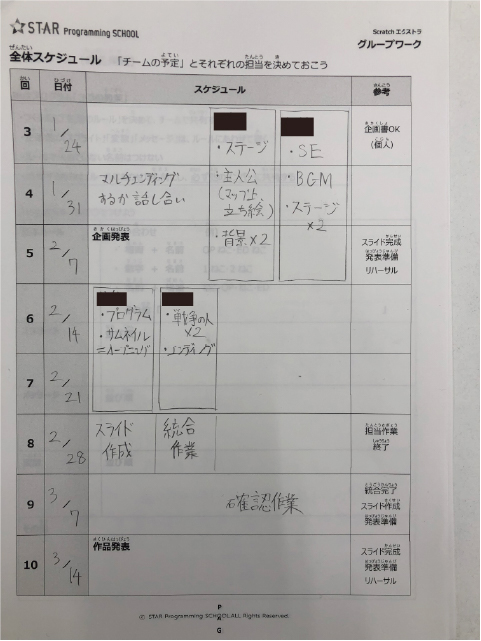 STAR Programming SCHOOL
Scratch エクストラ
グループワーク
全体スケジュール 「チームの予定」とそれぞれの担当を決めておこう
回 日付 スケジュール 参考
3 1/24
・ステージ
・SE
企画書OK
(個人)
4 1/31
マルチエンディング
するか話し合い
・主人公
(マップ上,
立ち絵)
・背景×2
・BGM
・ステージ
×2
5 2/7
企画発表
スライド完成
発表準備
リハーサル
6 2/14
・プログラム
・サムネイル
=オープニング
・戦争の人
×2
・エンディング
7 2/21
8 2/28
スライド
作成
統合
作業
担当作業
終了
9 3/7
確認作業
統合完了
スライド作成
発表準備
10 3/14
作品発表
スライド完成
発表準備
リハーサル
P
A
G
© STAR Programming SCHOOL ALL Rights Reserved.